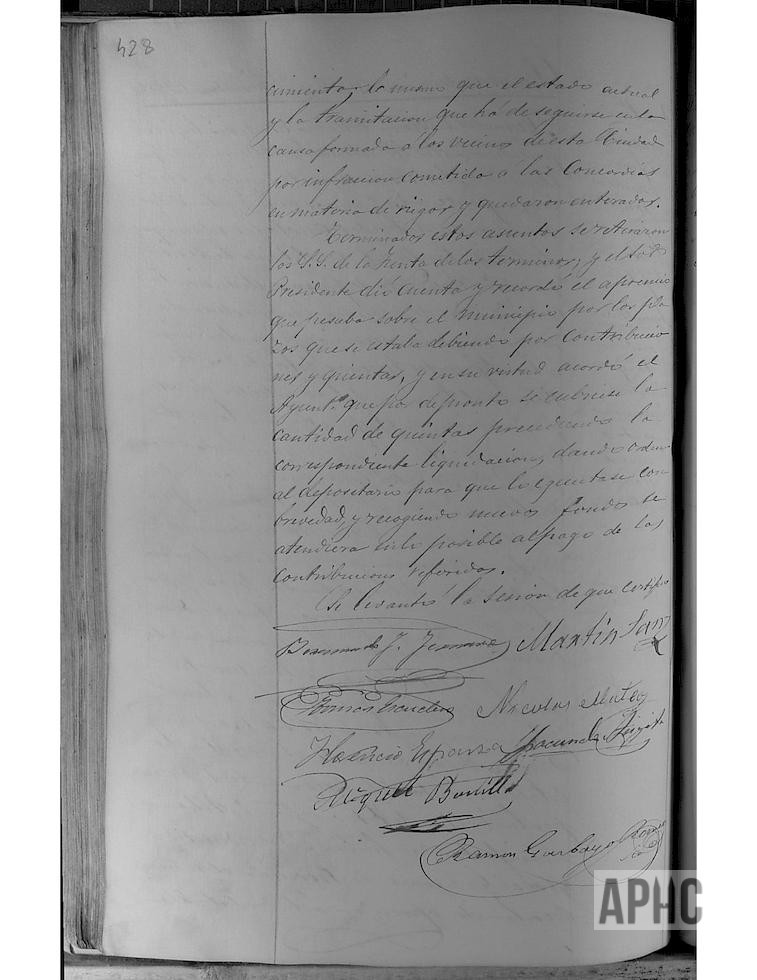 428
cimiento lo mismo que el estado actual
y la tramitacion que há de seguirse en la
causa formada a los vecinos de esta Ciudad
por infraccion cometida a las Concordias
en materia de riegos y quedaron enterados.
Terminados estos asuntos se retiraron
los S.S. de la Junta de los terminos; y el Sor.
Presidente dió cuenta y recordó el apremio
que pesaba sobre el municipio por los pla
zos que se estaba debiendo por Contribucio
nes y quintas, y en su virtud acordó el
Ayuntº que por de pronto se cubriese la
cantidad de quintas precediendo la
correspondiente liquidacion, dando orden
al depositario para que lo egecutase con
brevedad, y recogiendo nuevos fondos se
atendiera en lo posible al pago de las
contribuciones referidas.
Se levantó la sesion de que certifico
J. Martin San
Nicolas Mateo
Horacio
Miguel Bonilla
Ramon Garbayo
APHC